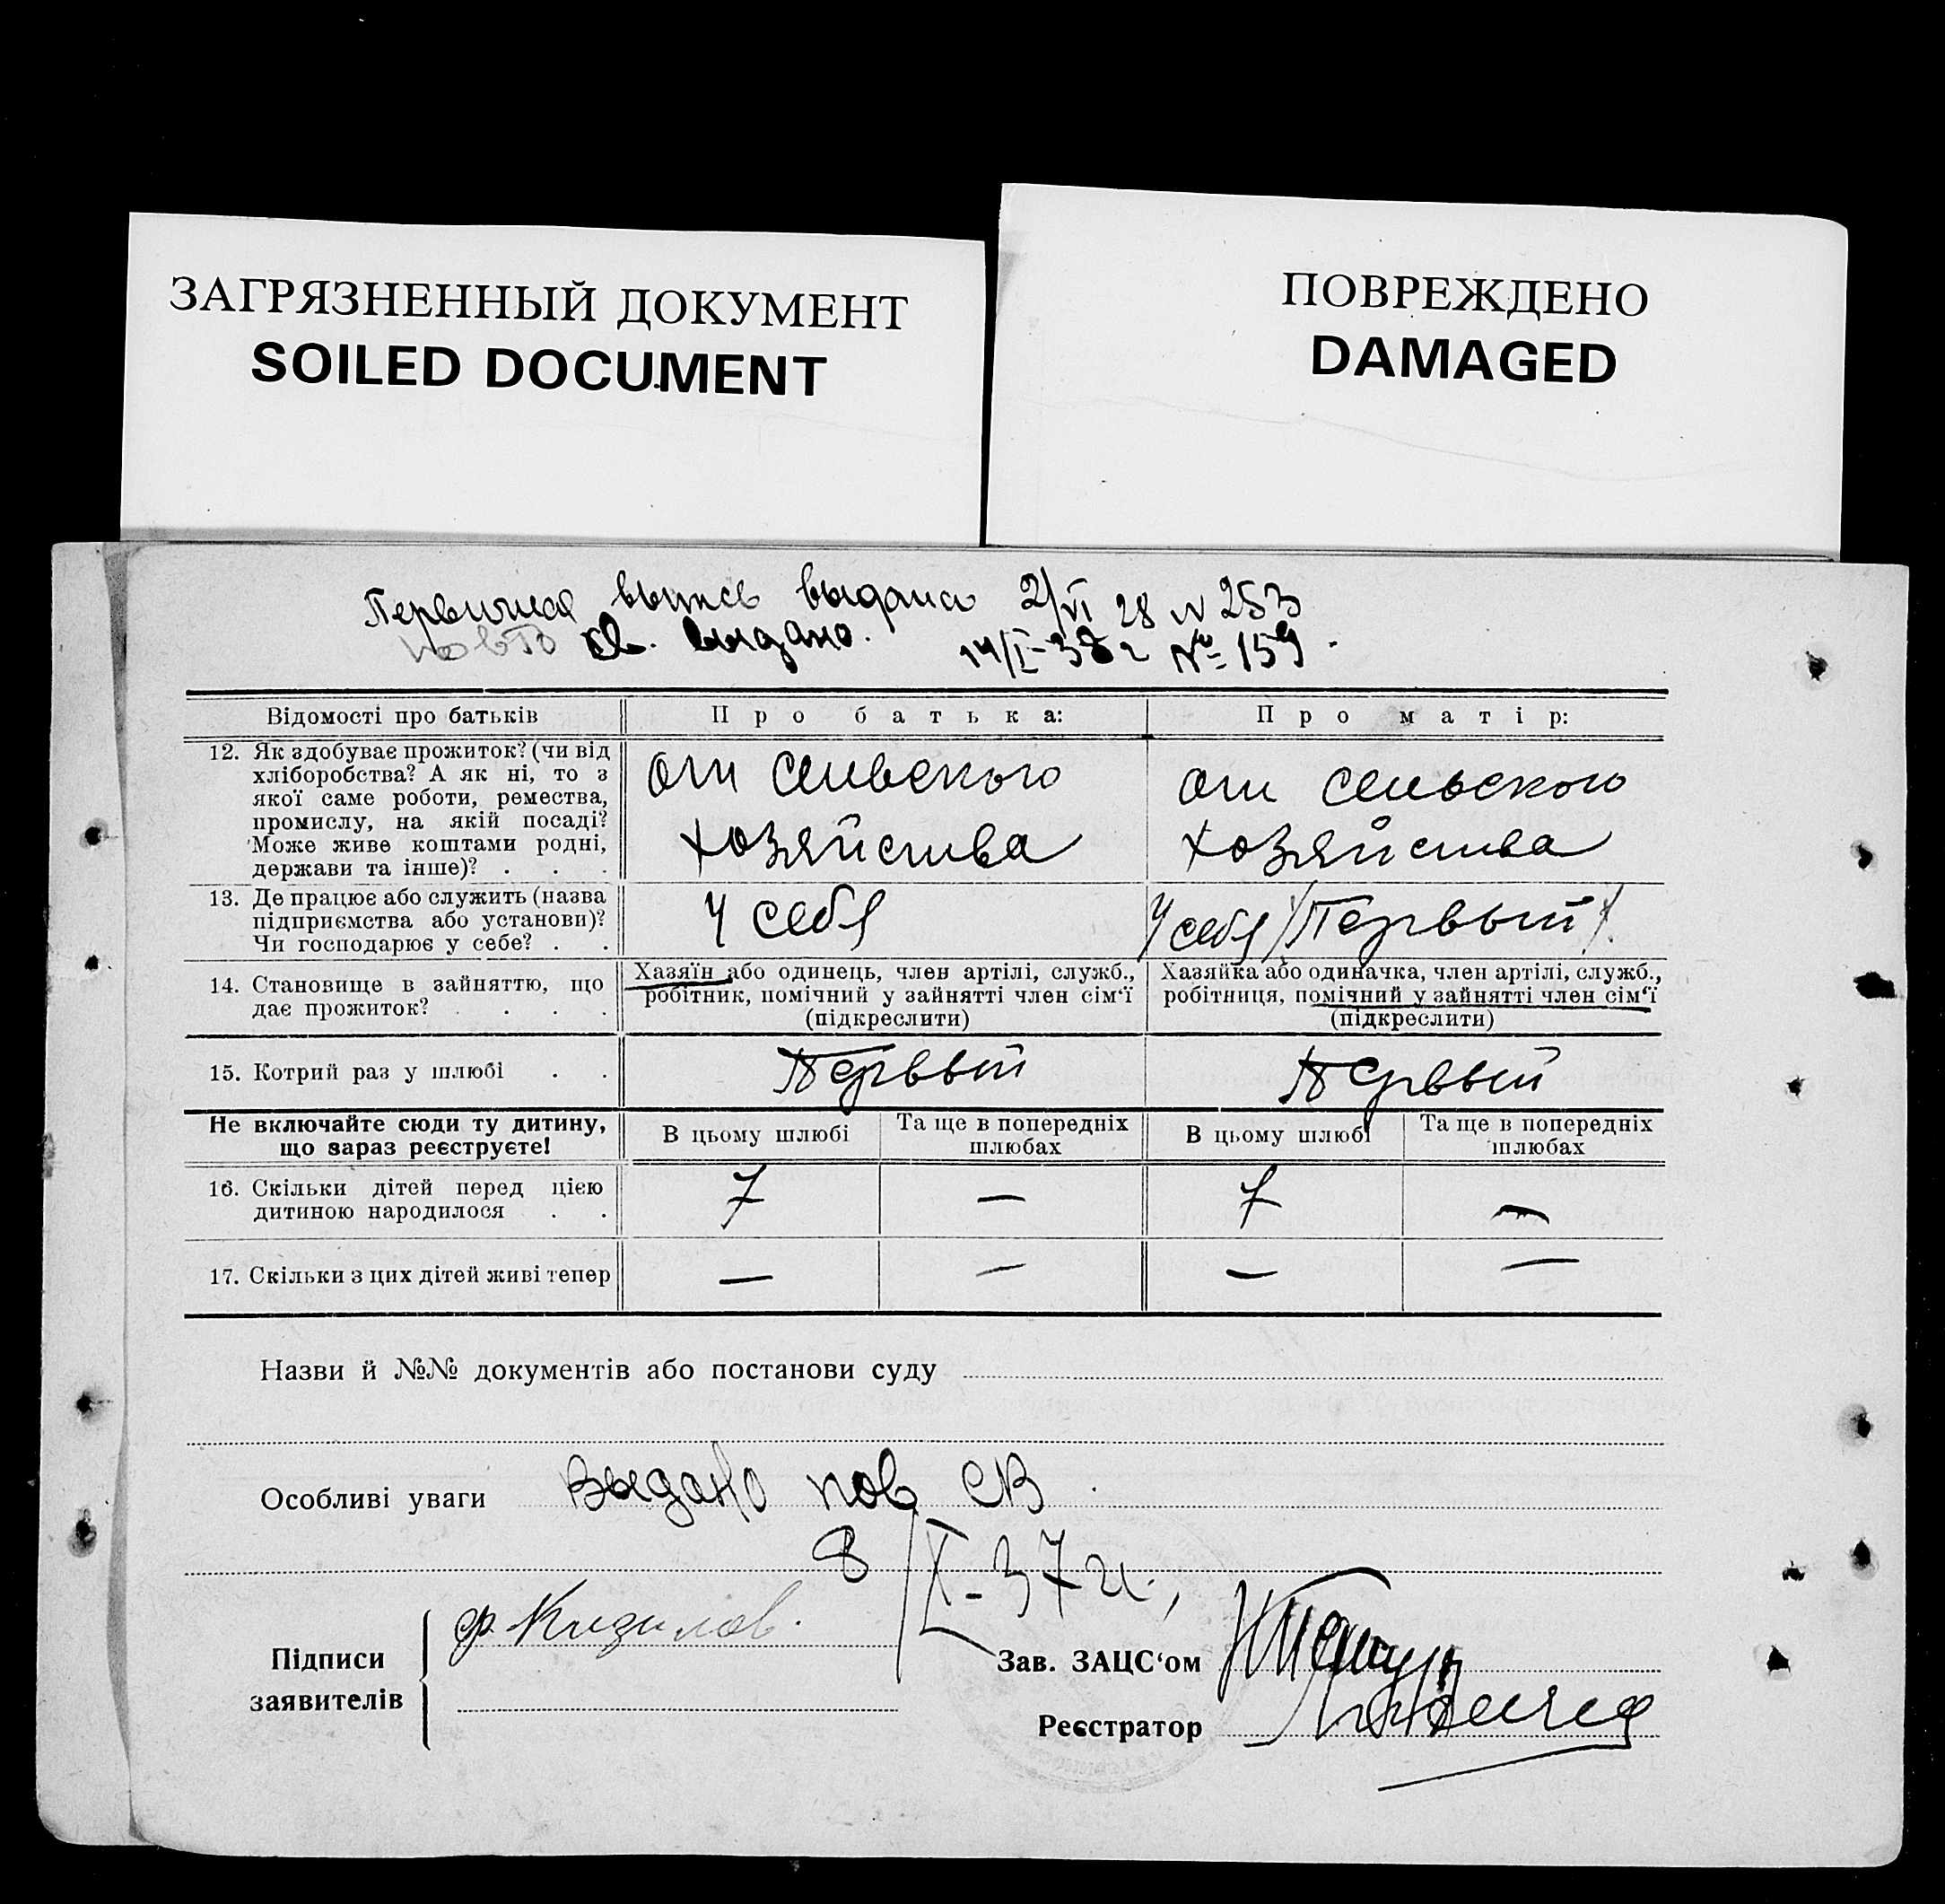 ЗАГРЯЗНЕННЫЙ ДОКУМЕНТ
SOILED DOCUMENT
ПОВРЕЖДЕНО
DAMAGED
Первичная выпись выдана 2/VI 28 N 253
св. выдано. 14/I-38 г №159.
Відомості про батьків
Про батька:
Про матір:
12. Як здобуває прожиток? (чи від
хліборобства? А як ні, то з
якої саме роботи, ремества,
промислу, на якій посаді?
Може живе коштами родні,
держави та інше)? . . .
От сельского
хозяйства
От сельского
хозяйства
13. Де працює або служить (назва
підприємства або установи)?
Чи господарює у себе? . .
У себя
У себя (Первый)
14. Становище в зайняттю, що
дає прожиток? . . . .
Хазяїн або одинець, член артілі, служб.,
робітник, помічний у зайнятті член сім‘ї
(підкреслити)
Хазяйка або одиначка, член артілі, служб.,
робітниця, помічний у зайнятті член сім‘ї
(підкреслити)
15. Котрий раз у шлюбі . .
Первый
Первый
Не включайте сюди ту дитину,
що зараз реєструєте!
В цьому шлюбі
Та ще в попередніх
шлюбах
В цьому шлюбі
Та ще в попередніх
шлюбах
16. Скільки дітей перед цією
дитиною народилося . .
7 — 7 —
17. Скільки з цих дітей живі тепер
— — — —
Назви й №№ документів або постанови суду
Особливі уваги Выдано пов СВ
8/X-37 г.,
Підписи
заявителів
ф. Кизилов.
Зав. ЗАЦС‘ом
Реєстратор